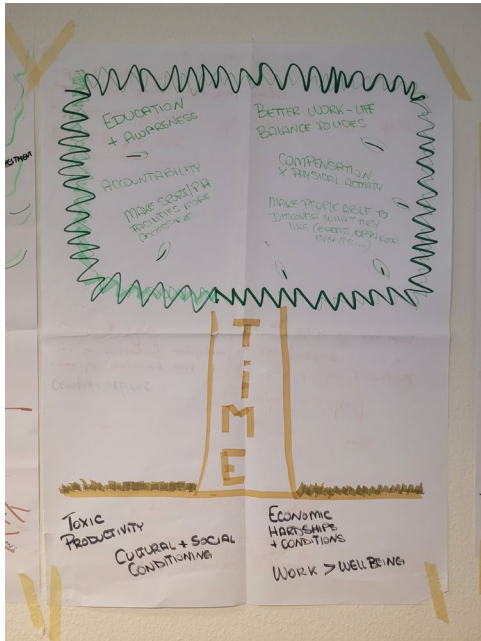 EDUCATION
+ AWARENESS
ACCOUNTABILITY
MAKE SPORT/PA
FACILITIES MORE
ACCESSIBLE
BETTER WORK-LIFE
BALANCE POLICIES
COMPENSATION
X PHYSICAL ACTIVITY
MAKE PEOPLE ABLE TO
DISCOVER WHAT THEY
LIKE (
EVENTS...)
TiME
TOXIC
PRODUCTIVITY
CULTURAL + SOCIAL
CONDITIONING
ECONOMIC
HARDSHIPS
+ CONDITIONS
WORK > WELLBEING